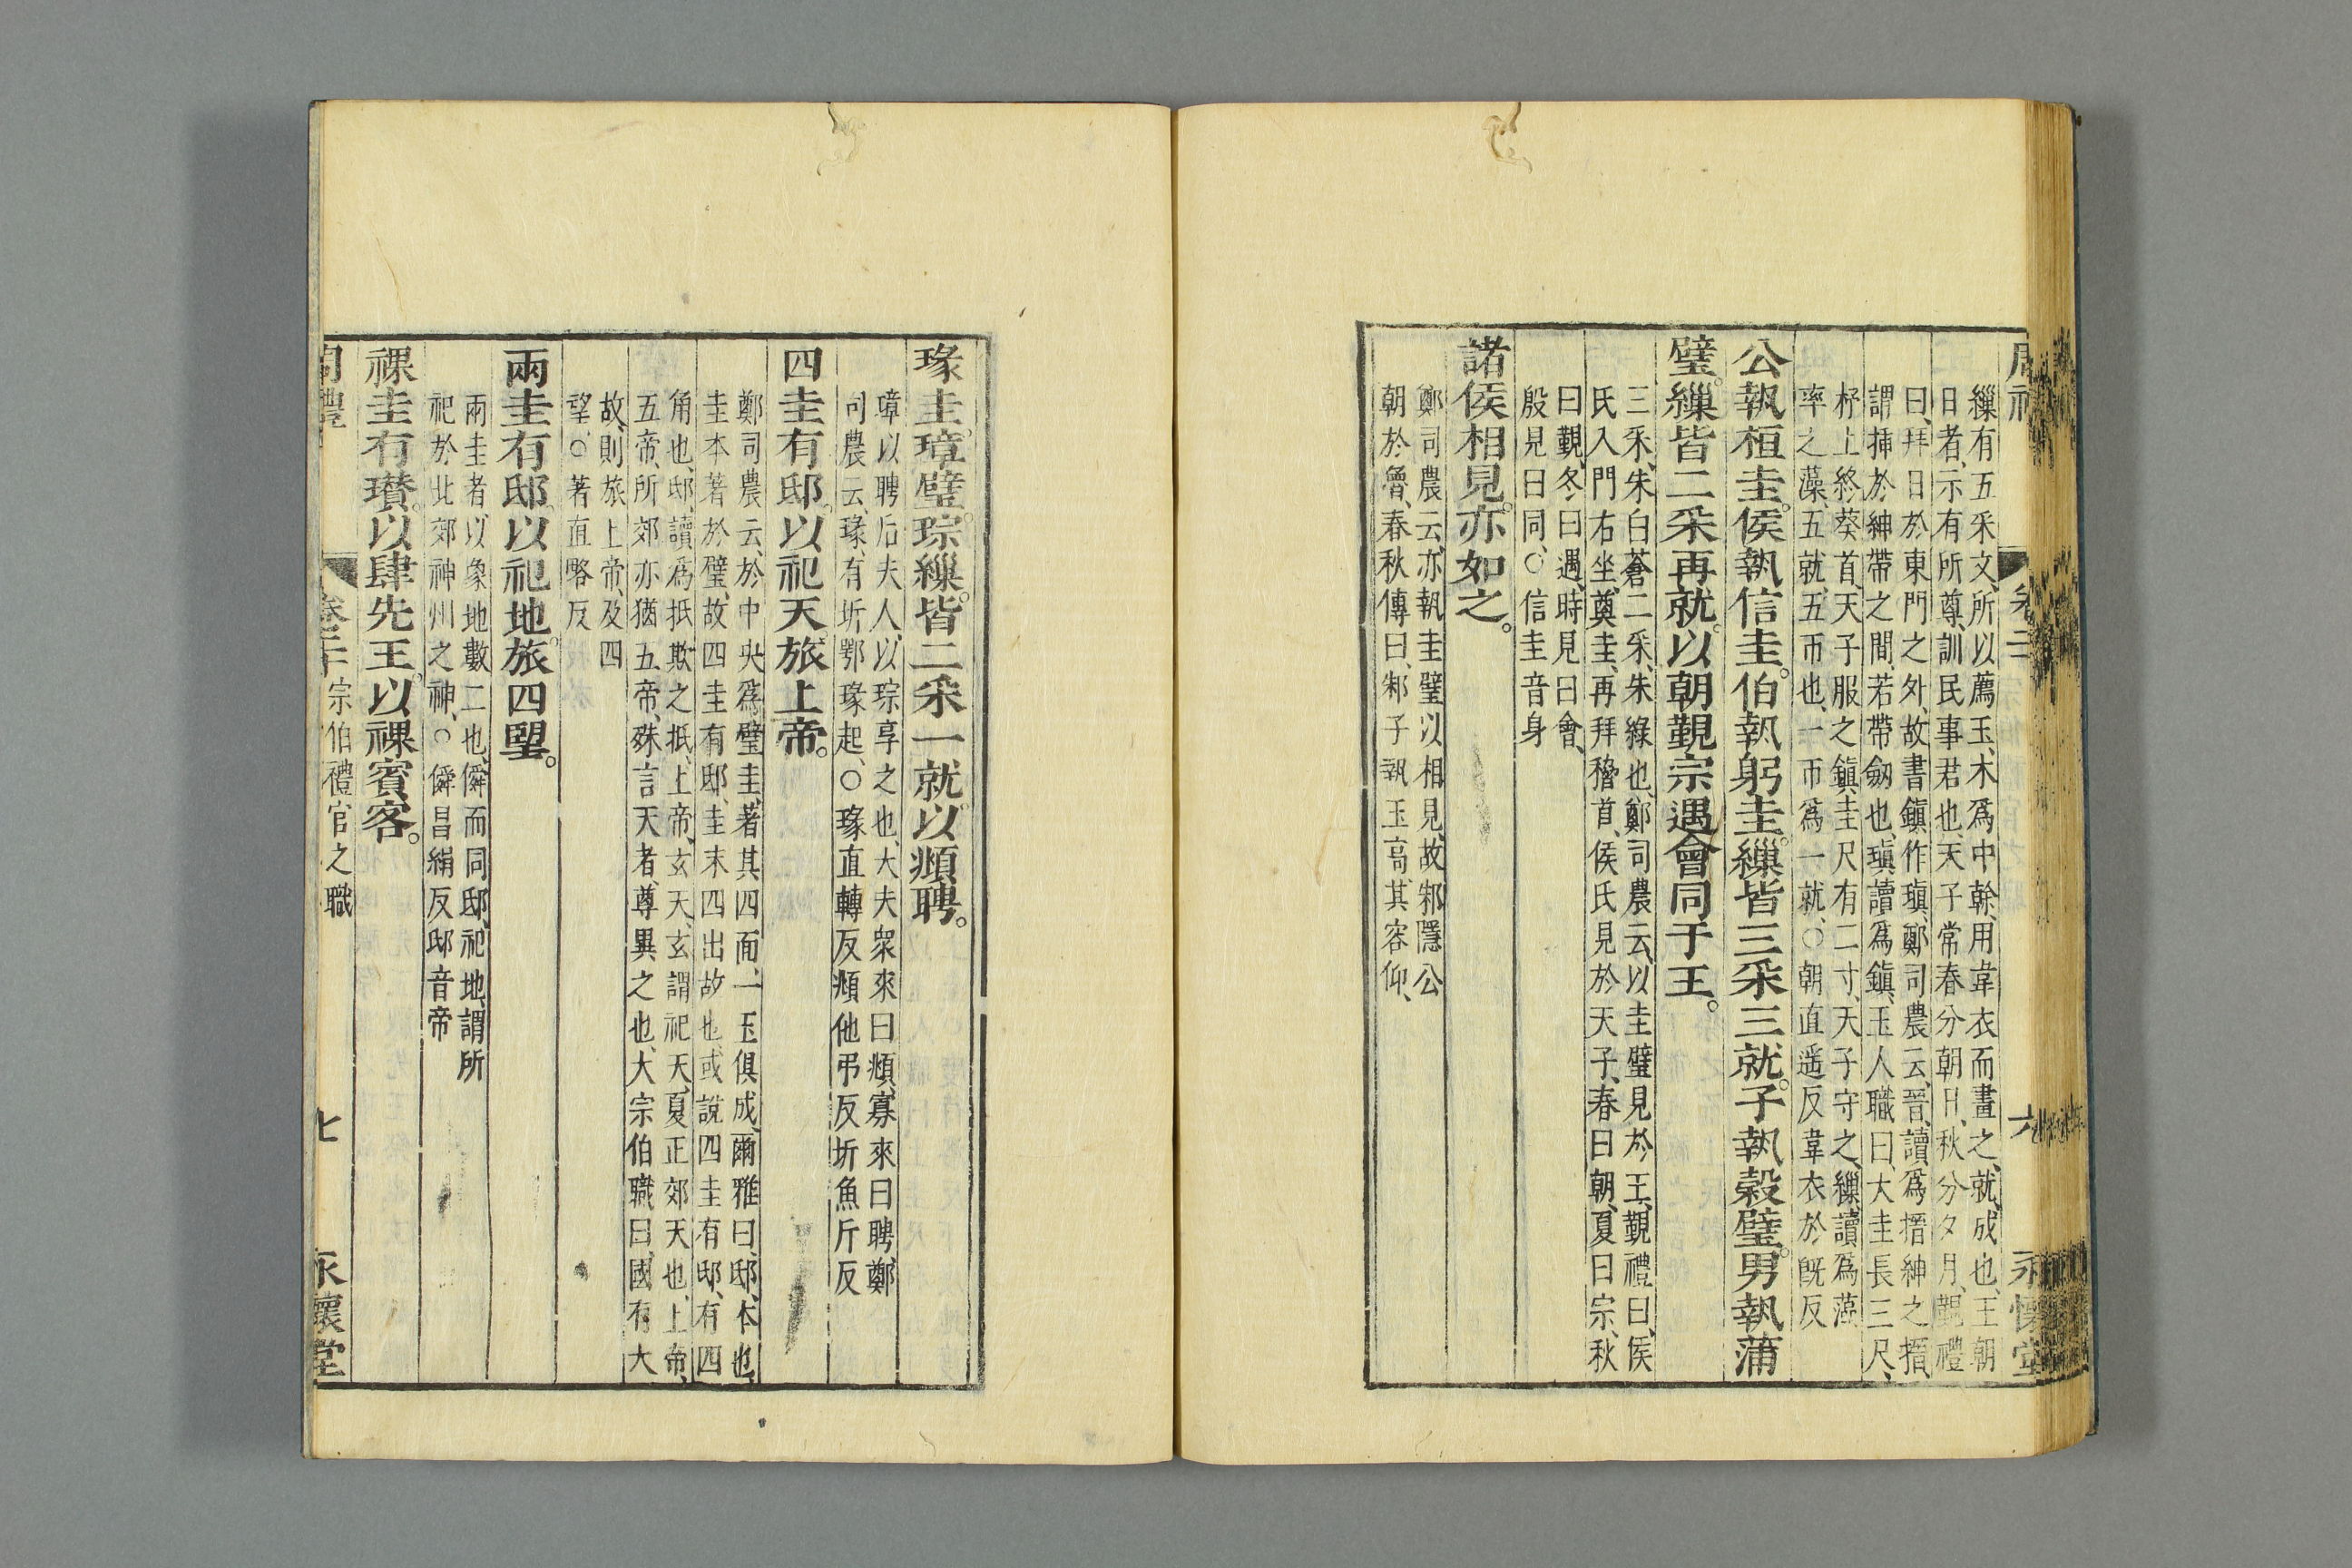 繅有五采文、所以薦玉、木爲中榦、用韋衣而畫之、就、成也、王朝
日者、示有所尊、訓民事君也、天子常春分朝日、秋分夕月、覲禮
曰、拜日於東門之外、故書鎭作瑱、鄭司農云、晉、讀爲搢紳之搢、
謂揷於紳帶之間、若帶劒也、瑱讀爲鎭、玉人職曰、大圭長三尺、
杼上終葵首、天子服之、鎭圭尺有二寸、天子守之、繅、讀爲藻
率之藻、五就、五帀也、一帀爲一就、○朝直遥反韋衣於旣反
公執桓圭。侯執信圭。伯執躬圭。繅皆三采三就。子執穀璧。男執蒲
璧。繅皆二采再就。以朝覲宗遇會同于王。
三采、朱白蒼二采、朱綠也、鄭司農云、以圭璧見於王、覲禮曰、侯
氏入門右坐、奠圭、再拜稽首、侯氏見於天子、春曰朝、夏曰宗、秋
曰覲、冬曰遇、時見曰會、
殷見曰同、○信圭音身
諸侯相見。亦如之。
鄭司農云、亦執圭璧以相見、故邾隱公
朝於魯、春秋傳曰、邾子執玉高、其容仰、
瑑圭。璋璧。琮繅。皆二采一就。以覜聘。
璋以聘后夫人、以琮享之也、大夫衆來曰覜、寡來曰聘、鄭
司農云、瑑、有圻鄂瑑起、○瑑直轉反覜他弔反圻魚斤反
四圭有邸。以祀天旅上帝。
鄭司農云、於中央爲璧、圭著其四面、一玉俱成、爾雅曰、邸、本也、
圭本著於璧、故四圭有邸、圭末四出故也、或說四圭有邸、有四
角也、邸、讀爲抵欺之抵、上帝、玄天、玄謂祀天、夏正郊天也、上帝、
五帝、所郊亦猶五帝、殊言天者、尊異之也、大宗伯職曰、國有大
故、則旅上帝、及四
望、○著直略反
兩圭有邸。以祀地。旅四望。
兩圭者、以象地數二也、僢而同邸、祀地、謂所
祀於北郊神州之神、○僢昌絹反邸音帝
祼圭有瓚。以肆先王。以祼賓客。
周禮 卷二十 宗伯禮官之職 七 永懷堂